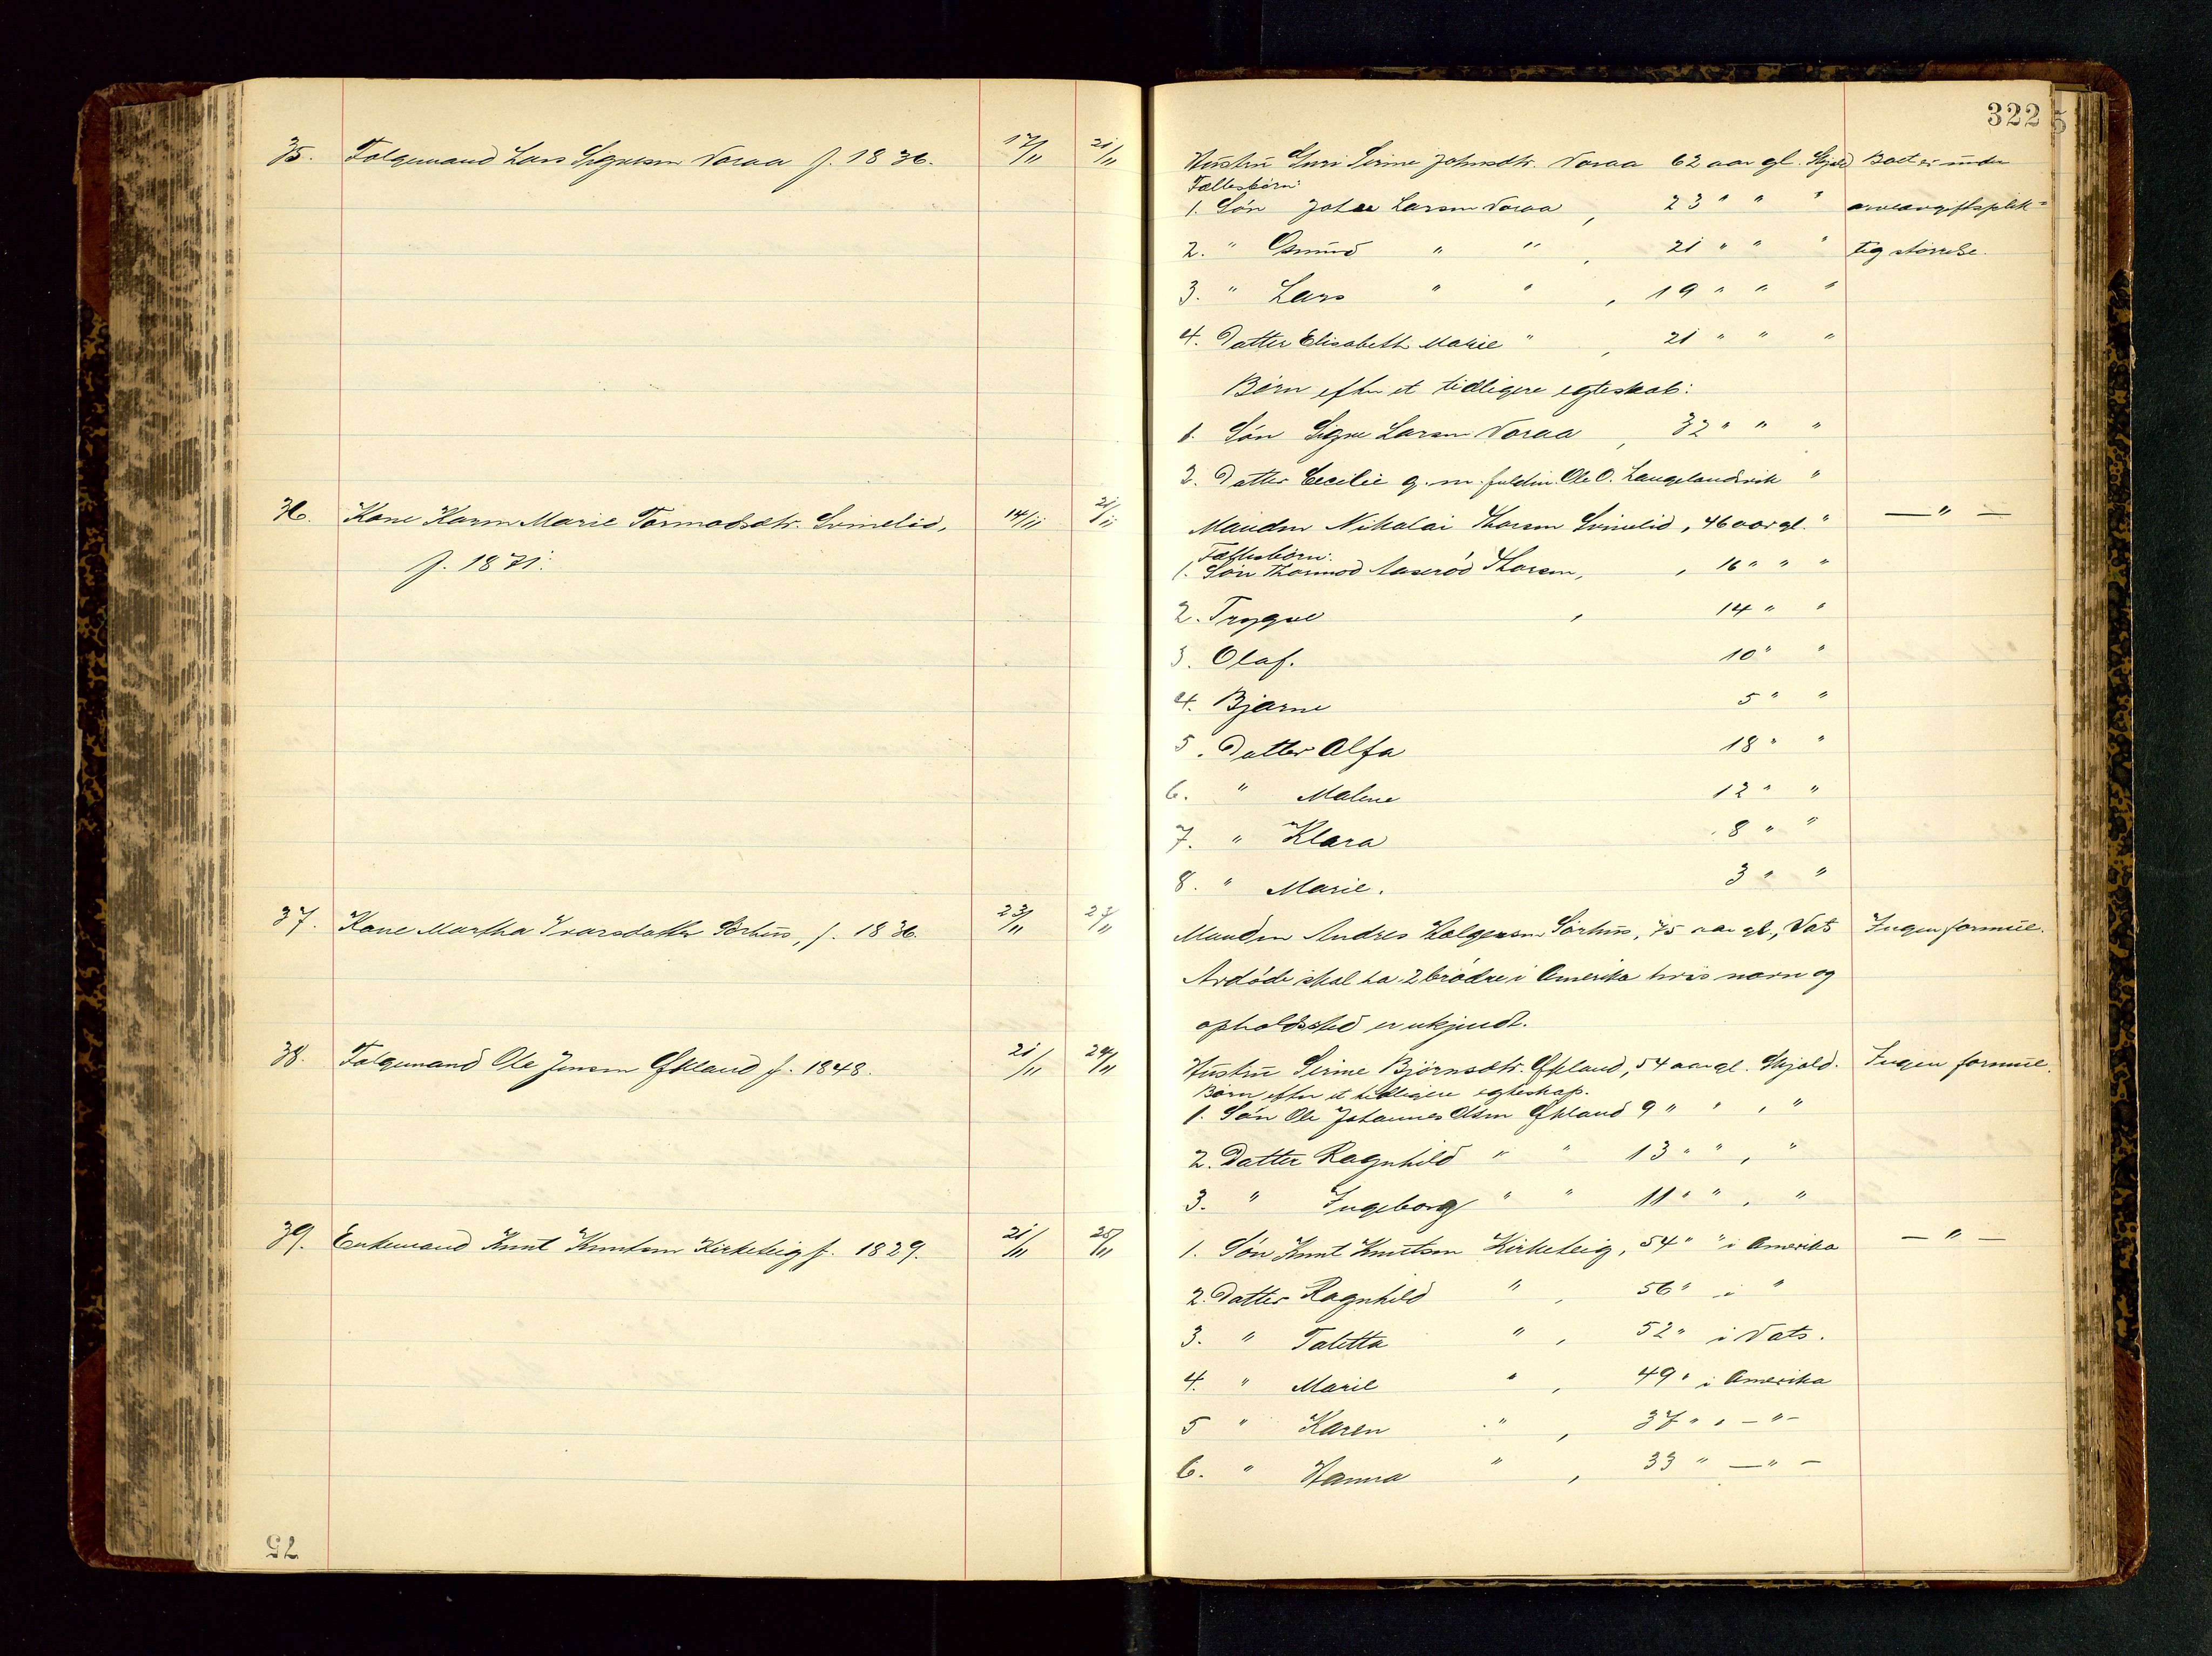 322
35. Folgemand Lars Sigvesen Voraa f. 1836. 17/11 21/11
36. Kone Karen Marie Tormodsdtr. Svinelid, 14/11 21/11
f. 1871.
37. Kone Martha Ivarsdatter Sørhus, f. 1836. 23/11 23/11
38. Folgemand Ole Jensen Øfkland f. 1848. 21/11 24/11
39. Enkemand Knut Knutsen Kirketeig f. 1829. 21/11 25/11
Hustru Guri Serine Johnsdtr. Voraa 62 aar gl. Skjold Boet er under
Fællesbørn:
1. Søn Johan Larsen Voraa , 23 " " " arveavgiftsplik=
2. " Osmund " " , 21 " " " tig størrelse.
3. " Lars " " , 19 " " "
4. Datter Elisabeth Marie " , 21 " " "
Børn efter et tidligere egteskab:
1. Søn Sigve Larsen Voraa , 32 " " "
2. Datter Cecilie g. m. Ole O. Langelandsvik "
Manden Nikolai Thorsen Svinelid, 46 aar gl. " — " —
Fællesbørn:
1. Søn Thormod Aaserød Thorsen, , 16 " " "
2. Trygve , 14 " "
3. Olaf. 10 " "
4. Bjarne 5 " "
5. Datter Alfa 18 " "
6. " Malene 12 " "
7. " Klara 8 " "
8. " Marie. 3 " "
Manden Andres Holgersen Sørhus, 75 aar gl., Vats Ingen formue.
Avdøde skal ha 2 brødre i Amerika hvis navn og
opholdssted er ukjendt.
Hustru Serine Bjørnsdtr. Øfkland, 54 aar gl. Skjold. Ingen formue.
Børn efter et tidligere egteskap.
1. Søn Ole Johannes Olsen Øfkland 9 " " , "
2. Datter Ragnhild " " 13 " " , "
3. " Ingeborg " " 11 " " , "
1. Søn Knut Knutsen Kirketeig, 54 " " i Amerika — " —
2. Datter Ragnhild " , 56 " i "
3. " Taletta " , 52 " i Vats.
4. " Marie " , 49 " i Amerika
5 " Karen " , 37 " " — " —
6. " Hanna " , 33 " — " —